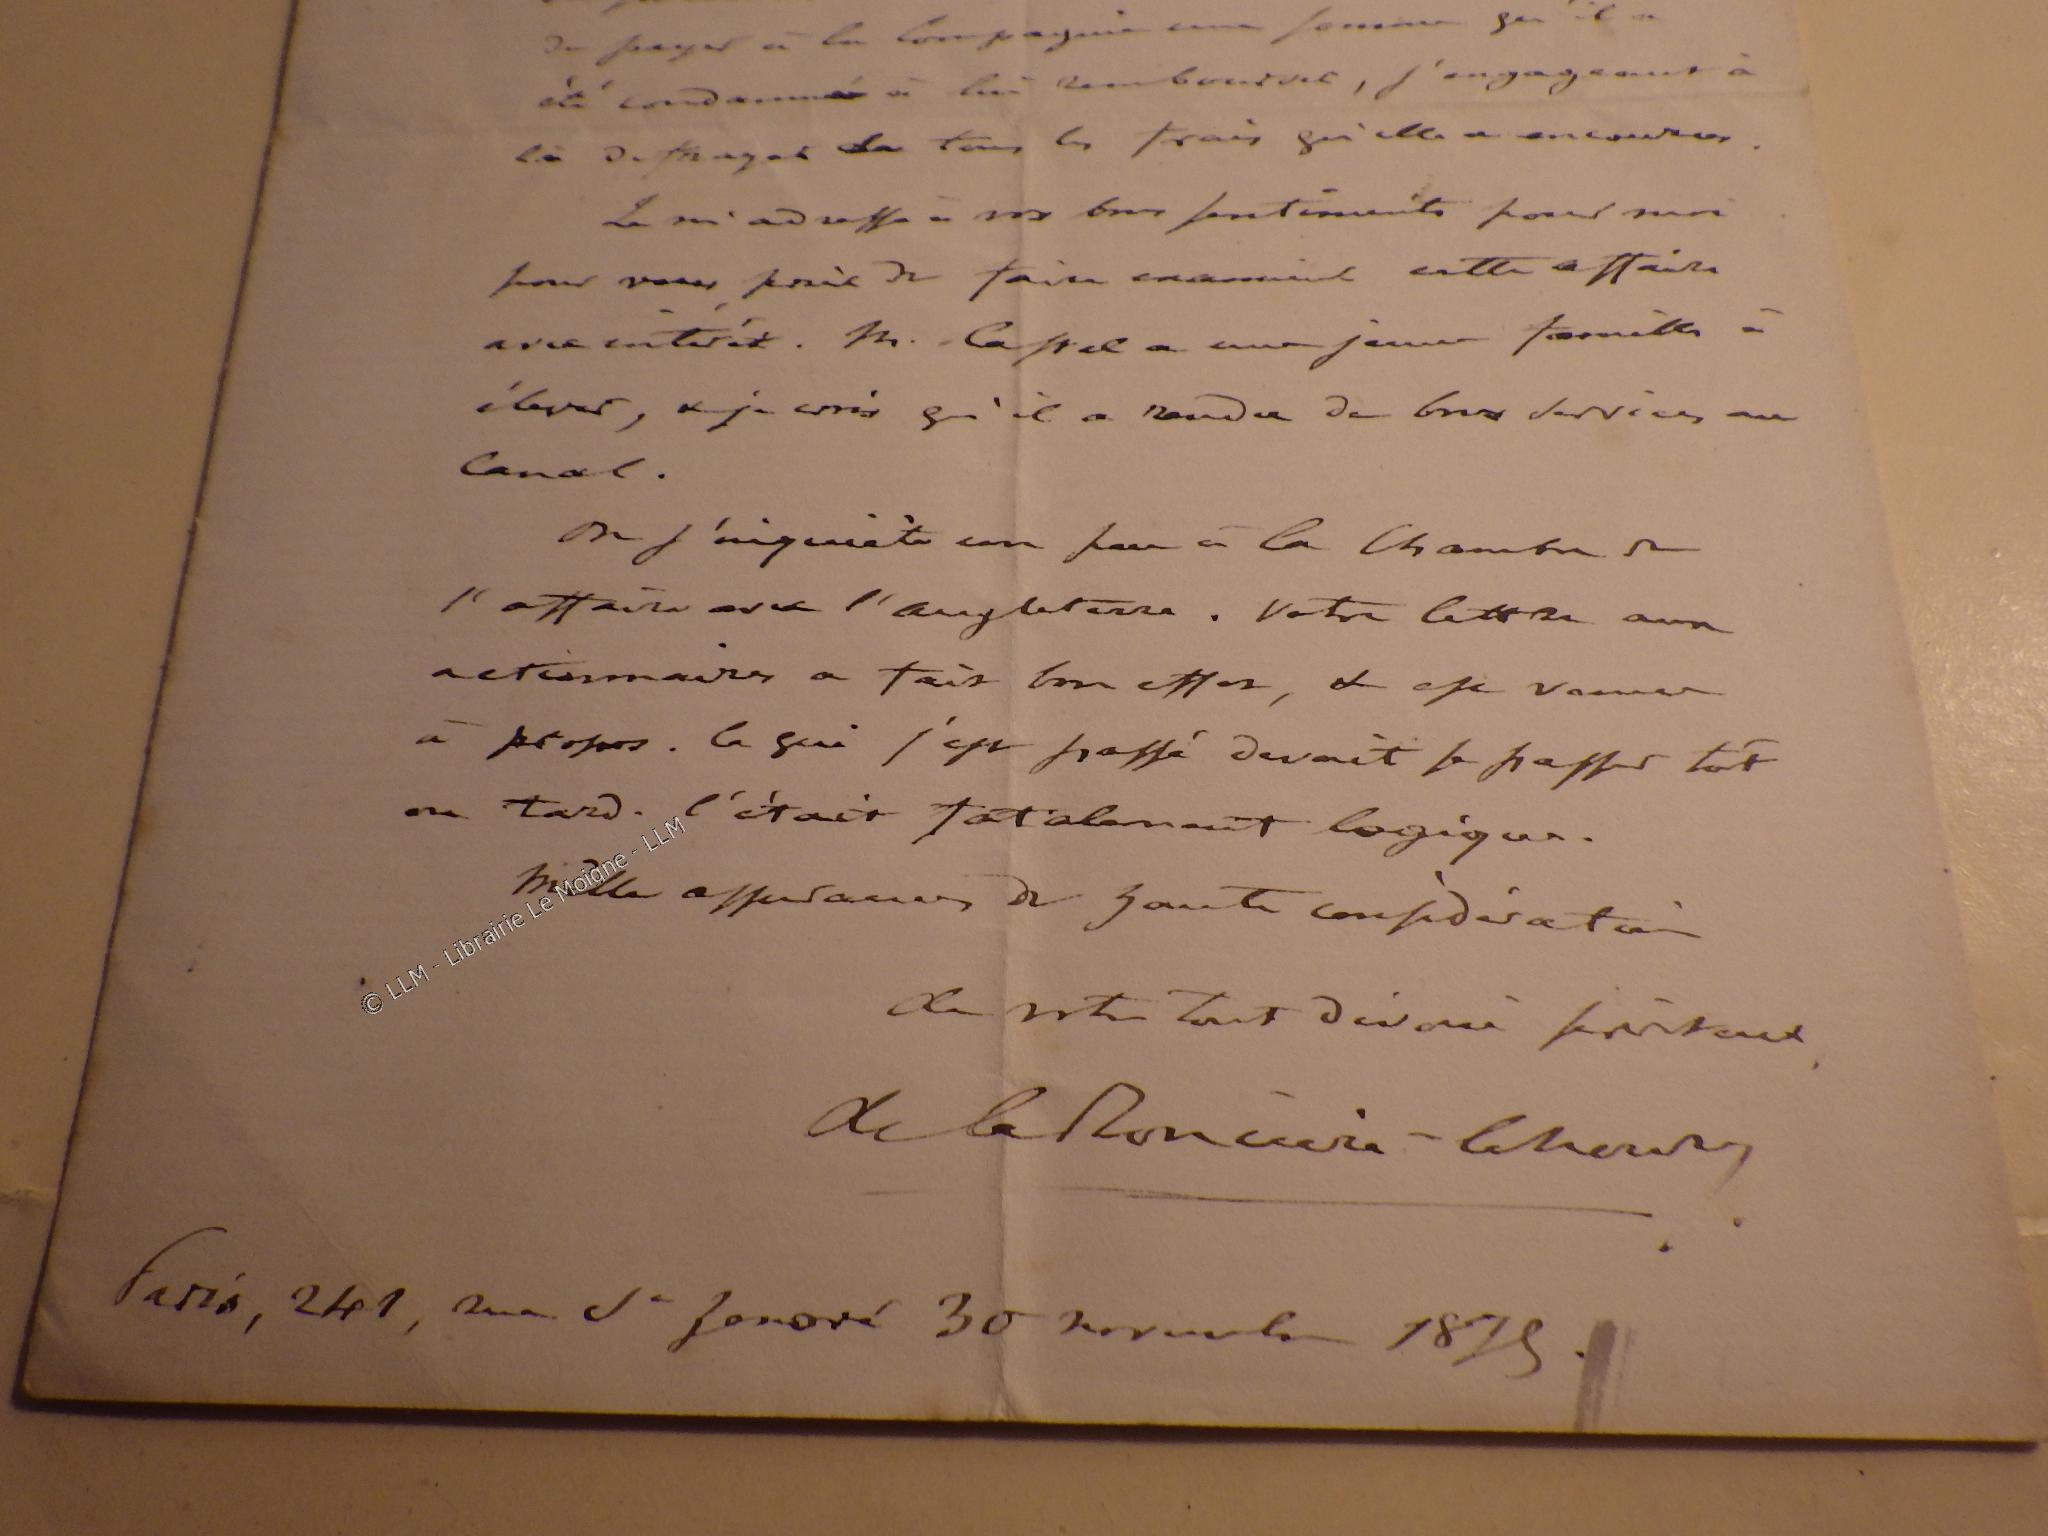 de payer à la Compagnie une somme qu'il a
été condamné à lui rembourser, s'engageant à
la defrayer de tous les frais qu'elle a encourus.
Je m'adresse à vos bons sentiments pour moi
pour vous prier de faire examiner cette affaire
avec intérêt. M. Cassel a une jeune famille à
élever, & je crois qu'il a rendu de bons services au
Canal.
On s'inquiète un peu à la Chambre de
l'affaire avec l'Angleterre. Votre lettre aux
actionnaires a fait bon effet, & est venue
à propos. Ce qui s'est passé devait se passer tôt
ou tard. C'était fatalement logique.
Mille assurances de haute considération
de votre tout dévoué serviteur,
de la Roncière-le Noury
Paris, 241, rue St honoré 30 novembre 1875.
© LLM - Librairie Le Moigne - LLM